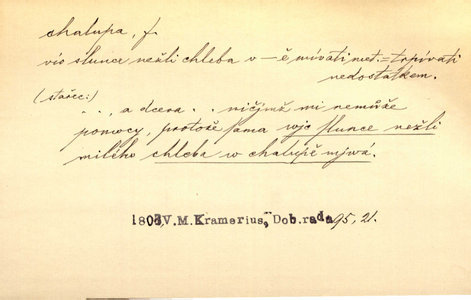 chalupa, f.
víc slunce nežli chleba v –ě mívati met. = trpívati
nedostatkem.
(stařec:)
. . , a dcera . . ničjmž mi nemůže
pomocy, protože sama wjc slunce nežli
milého chleba w chalupě mjwá.
1803, V.M.Kramerius, Dob.rada 95, 21.